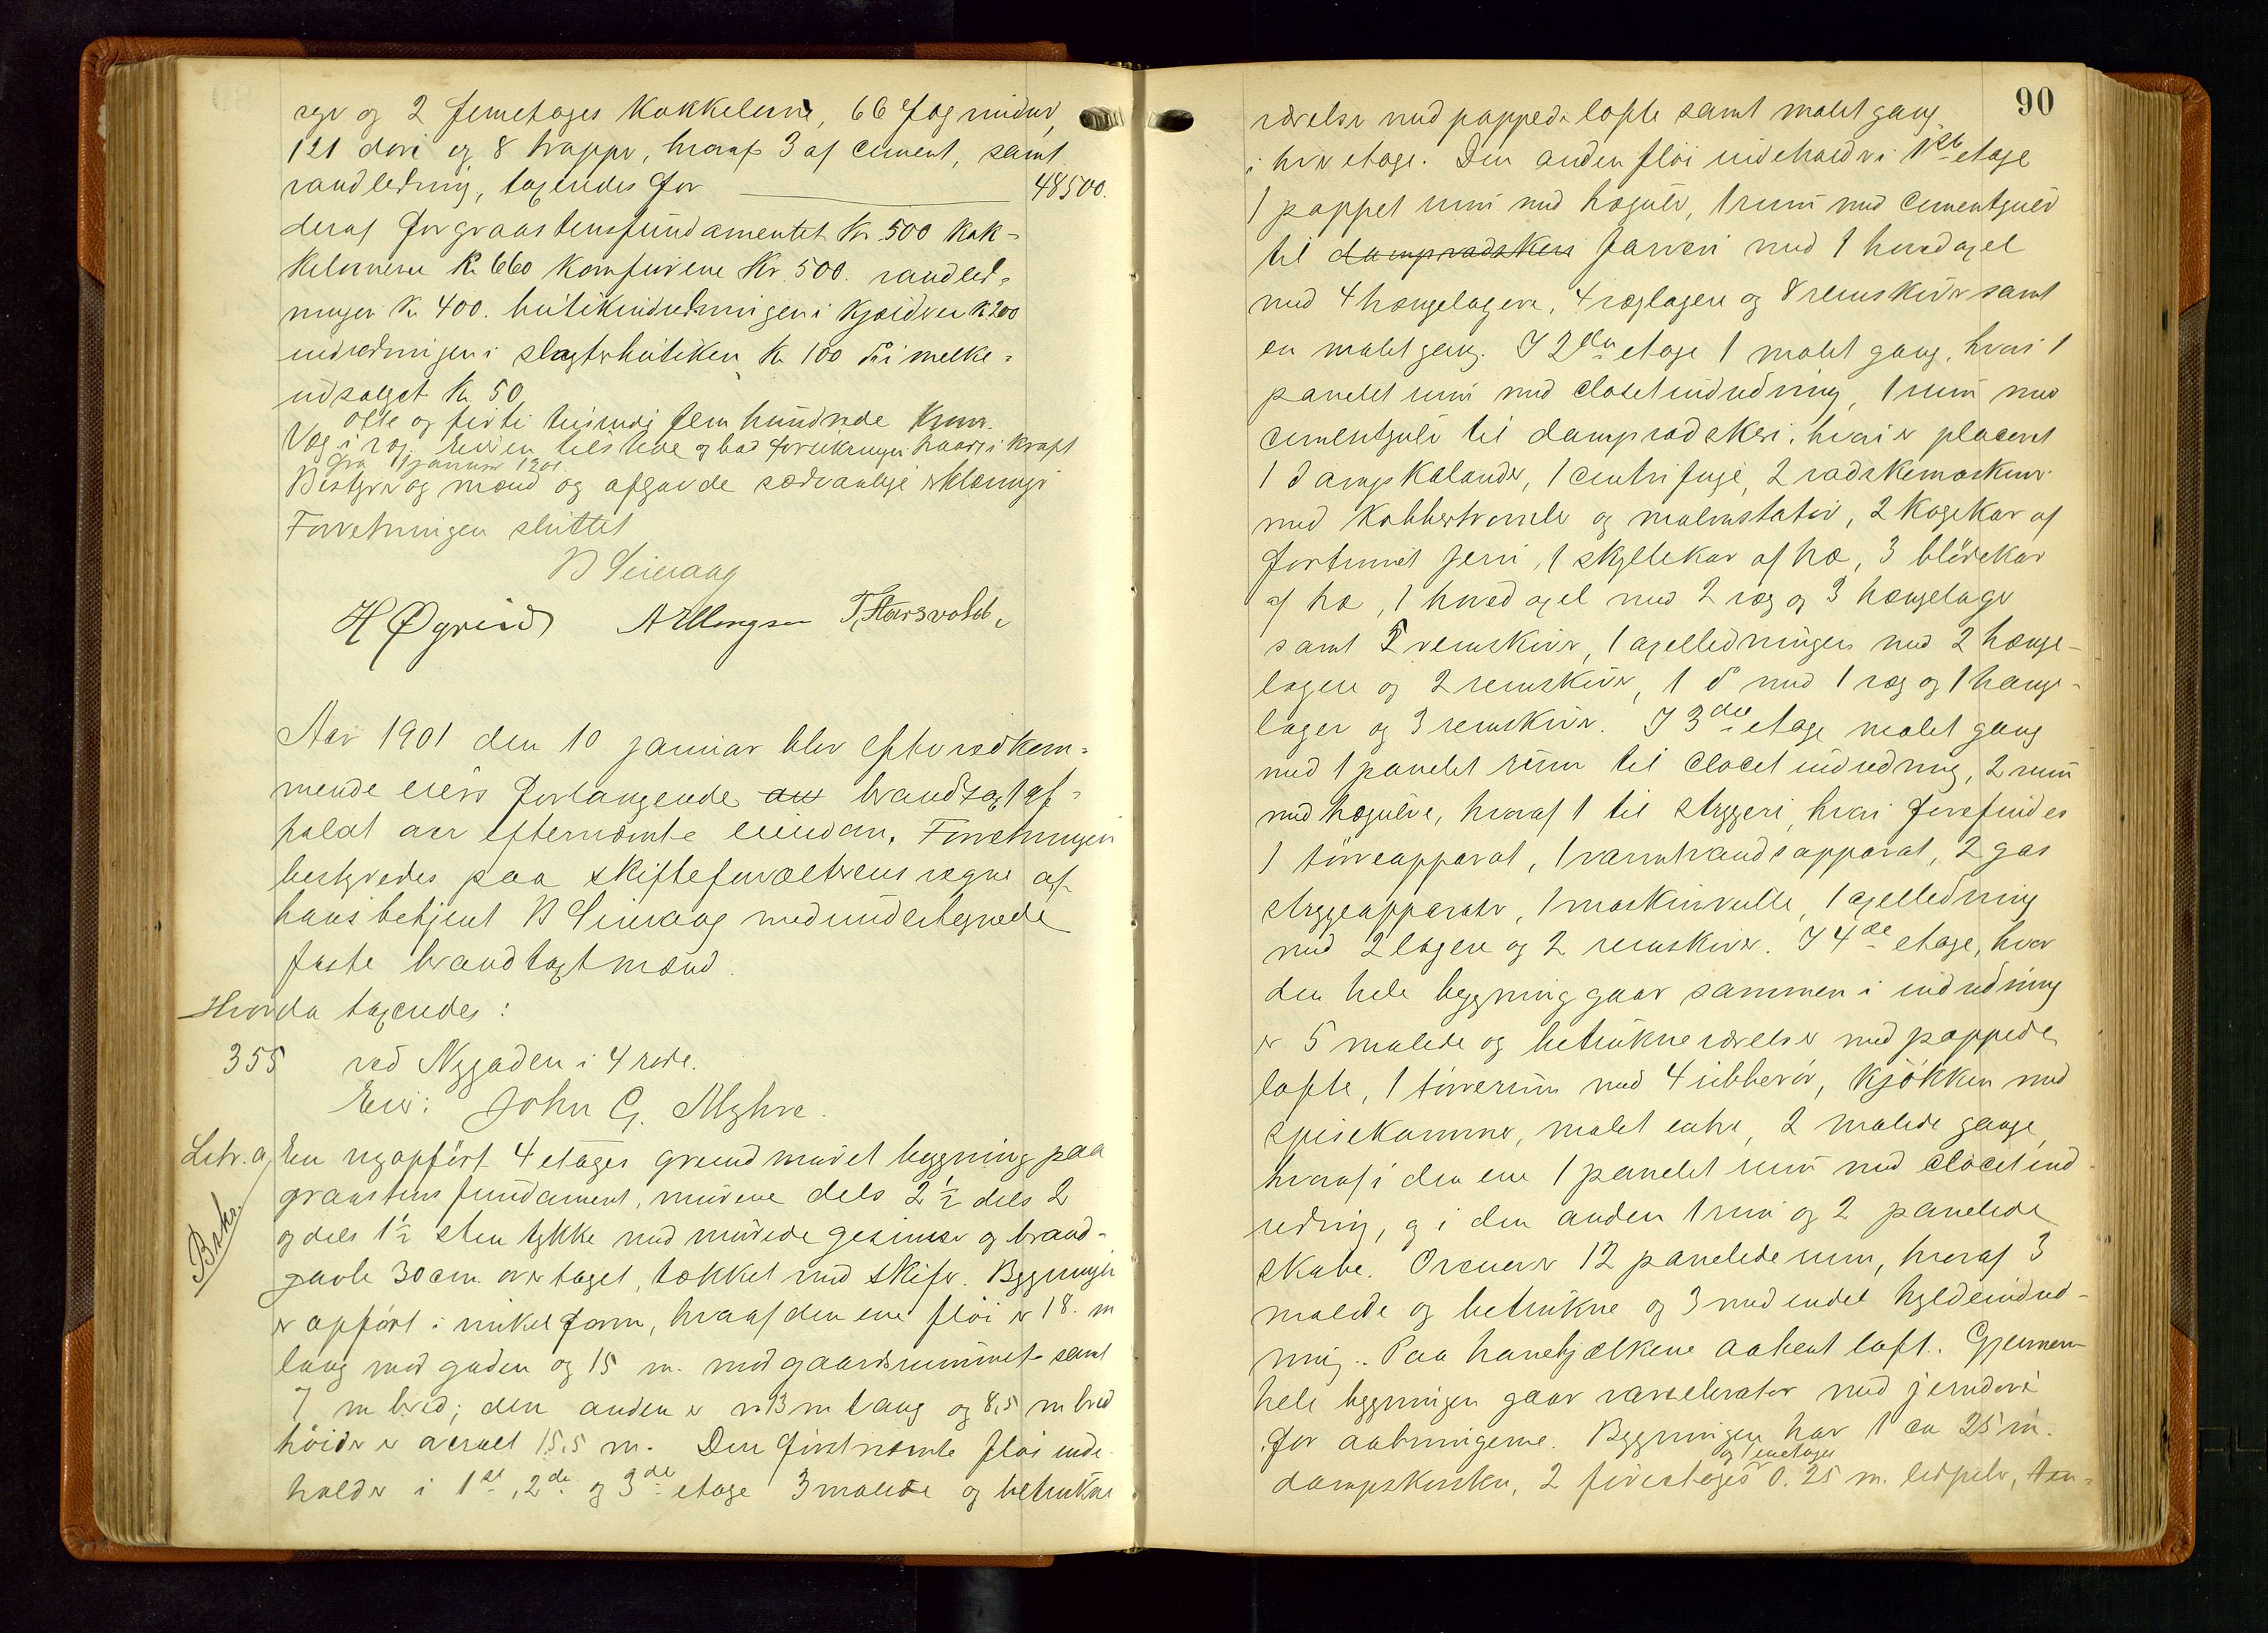 og 2 femetages kakkelovne, 66 fag vinduer,
121 döre og 8 trapper, hvoraf 3 af cement, samt
vandledning, taxeredes for 48500.
deraf for graastensfundamentet Kr 500 kak-
kelovnene Kr 660 komfurene Kr. 500. vandled-
ningen Kr 400. butikindredningen i kjælderen Kr 200
indredningen i slagterbutiken Kr 100 do i melke-
udsalget Kr 50
otte og firti tusinde fem hundrede Kroner.
tilstede og bad forsikringen traadt i kraft
fra 11 januar 1901
Bestyrer og mænd og afgav de sædvanlige erklæringer
Forretningen sluttet
B Seieraag
H Öyreid A Ellingsen T. Harsvoldt
Aar 1901 den 10 januar blev efter vedkom-
mende eiers forlangende brandtaxt af-
holdt over efternæmte eiendom. Forretningen
bestyredes paa skifteforvalterens vegne af
hans betjent B Seieraag med undertegnede
faste brandtaxtmænd.
Hvorda taxeredes:
355 ved Nygaden i 4 rode.
Eier: John G. Myhre.
Litr. a, En nyopfört 4 etages grundmuret bygning paa
Bskr.
graastens fundament, murene dels 2½ dels 2
og dels 1½ sten tykke med murede gesimser og brand-
gavle 30 cm over taget, tækket med skifer. Bygningen
er opfört i vinkelform, hvoraf den ene flöi er 18. m
lang mod gaden og 15 m. mod gaardsrummet samt
7 m bred; den anden er 13 m lang og 8,5 m bred
höiden er overalt 15,5 m. Den förstnæmte flöi inde-
holder i 1ste, 2de og 3die etage 3 malede og betrukne
90
værelser med pappede lofte samt malet gang
i hver etage. Den anden flöi indeholder i 1ste etage
1 pappet rum med trægulv, 1 rum med cementgulv
til dampvadskeri farveri med 1 hovedaxel
med 4 hængelagere, 4 væglagere og 8 remskiver samt
en malet gang. I 2den etage 1 malet gang, hvori 1
panelet rum med closetindredning, 1 rum med
cementgulv til dampvadskeri, hvori er placeret
1 dampkalander, 1 centrifuge, 2 vadskemaskiner
med kobbertromle og malmstativ, 2 kogekar af
fortinnet jern, 1 skyllekar af træ, 3 blödekar
af træ, 1 hovedaxel med 2 væg og 3 hængelager
samt 5 remskiver, 1 axelledningen med 2 hænge-
lagere og 2 remskiver, 1 do med 1 væg og 1 hænge-
lager og 3 remskiver. I 3die etage malet gang
med 1 panelet rum til closetindredning, 2 rum
med trægulve, hvoraf 1 til strygeri, hvori forefindes
1 törreapparat, 1 varmtvandsapparat, 2 gas
strygeapparater, 1 maskinrulle, 1 axelledning
med 2 lagere og 2 remskiver. I 4de etage, hvor
den hele bygning gaar sammen i indredning
er 5 malede og betrukne værelser med pappede
lofte, 1 törrerum med 4 ribberör, kjökken med
spisekammer, malet entre, 2 malede gange,
hvoraf i den ene 1 panelet rum med closetind-
redning, og i den anden 1 rum og 2 panelede
skabe. Ovenover 12 panelede rum, hvoraf 3
malede og betrukne og 3 med endel hyldeindred-
ning. Paa hanebjælkene aabent loft. Gjennem
hele bygningen gaar vareelevator med jerndöre
for aabningerne. Bygningen har 1 ca 25 m.
dampskorsten, 2 fireetages og 1 enetages 0.25 m.